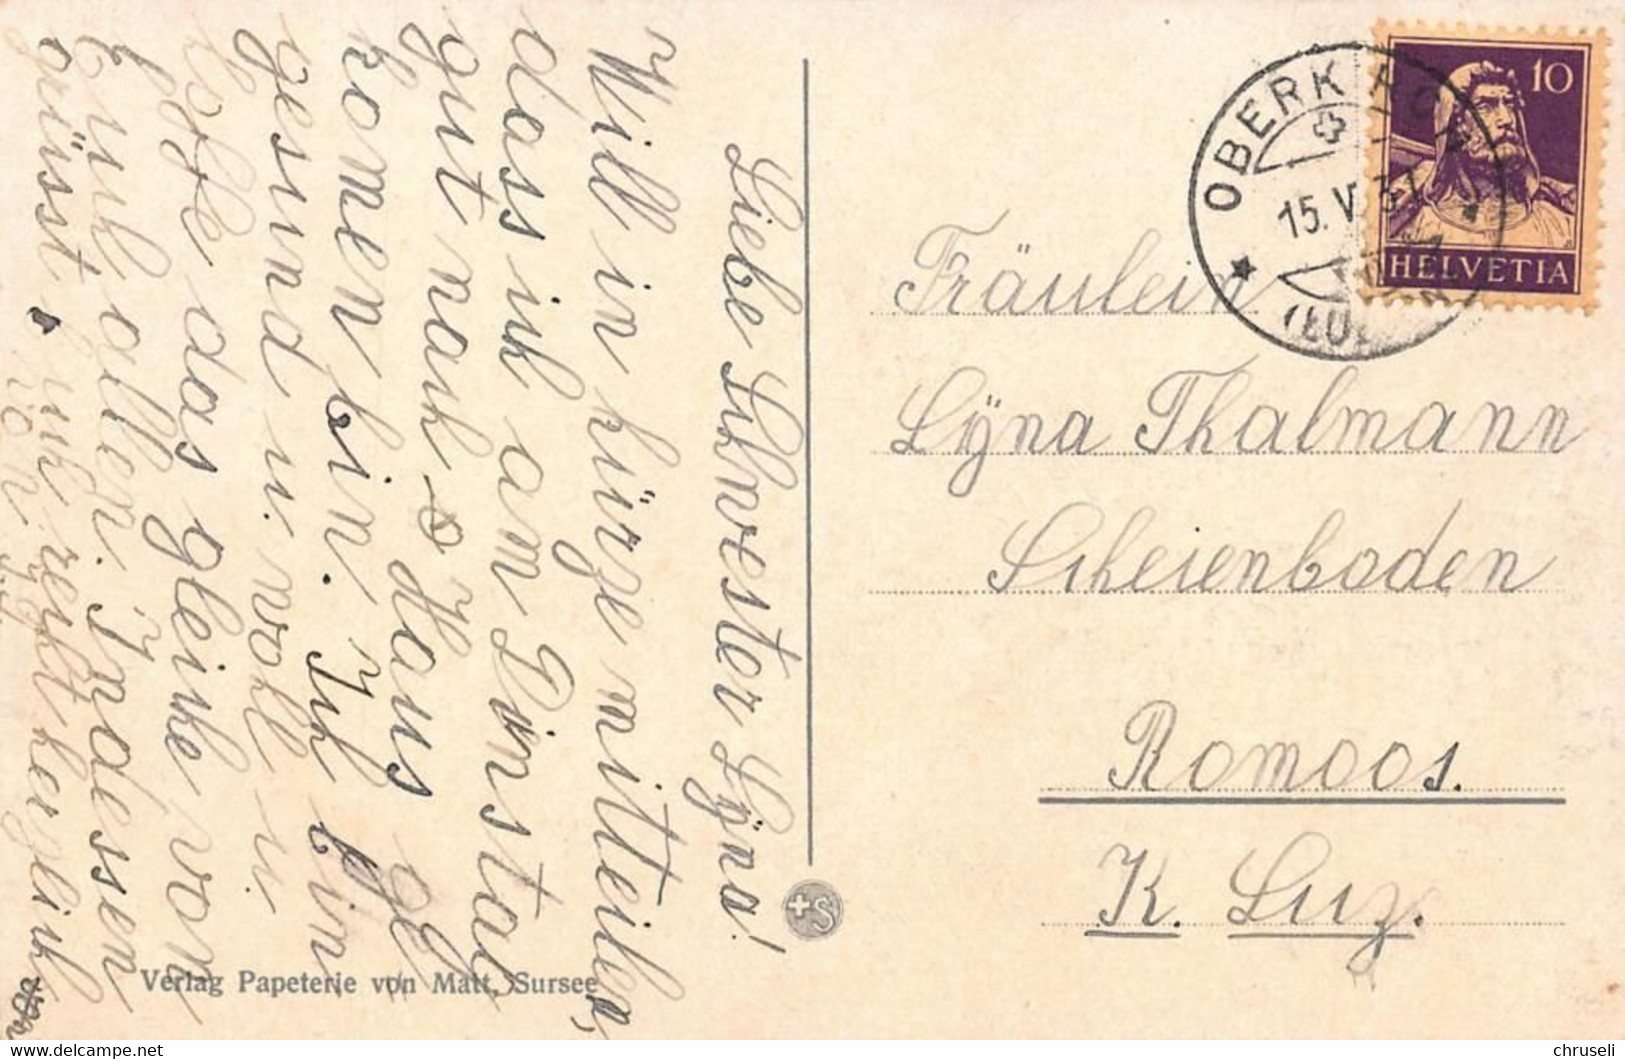 Liebe Schwester Lÿna!
Will in kürze mitteilen,
dass ich am Dinstag
gut nach Haus ge
komen bin. Ich bin
gesund u. wohl u.
hoffe das gleiche von
Euch allen. Indessen
grüsst Euch recht herzlich
von
Verlag Papeterie von Matt, Sursee
OBERKIRCH
15. V. 31
(LUZERN)
10
HELVETIA
Fräulein
Lÿna Thalmann
Scheienboden
Romoos.
K. Luz.
+S
delcampe.net
chruseli